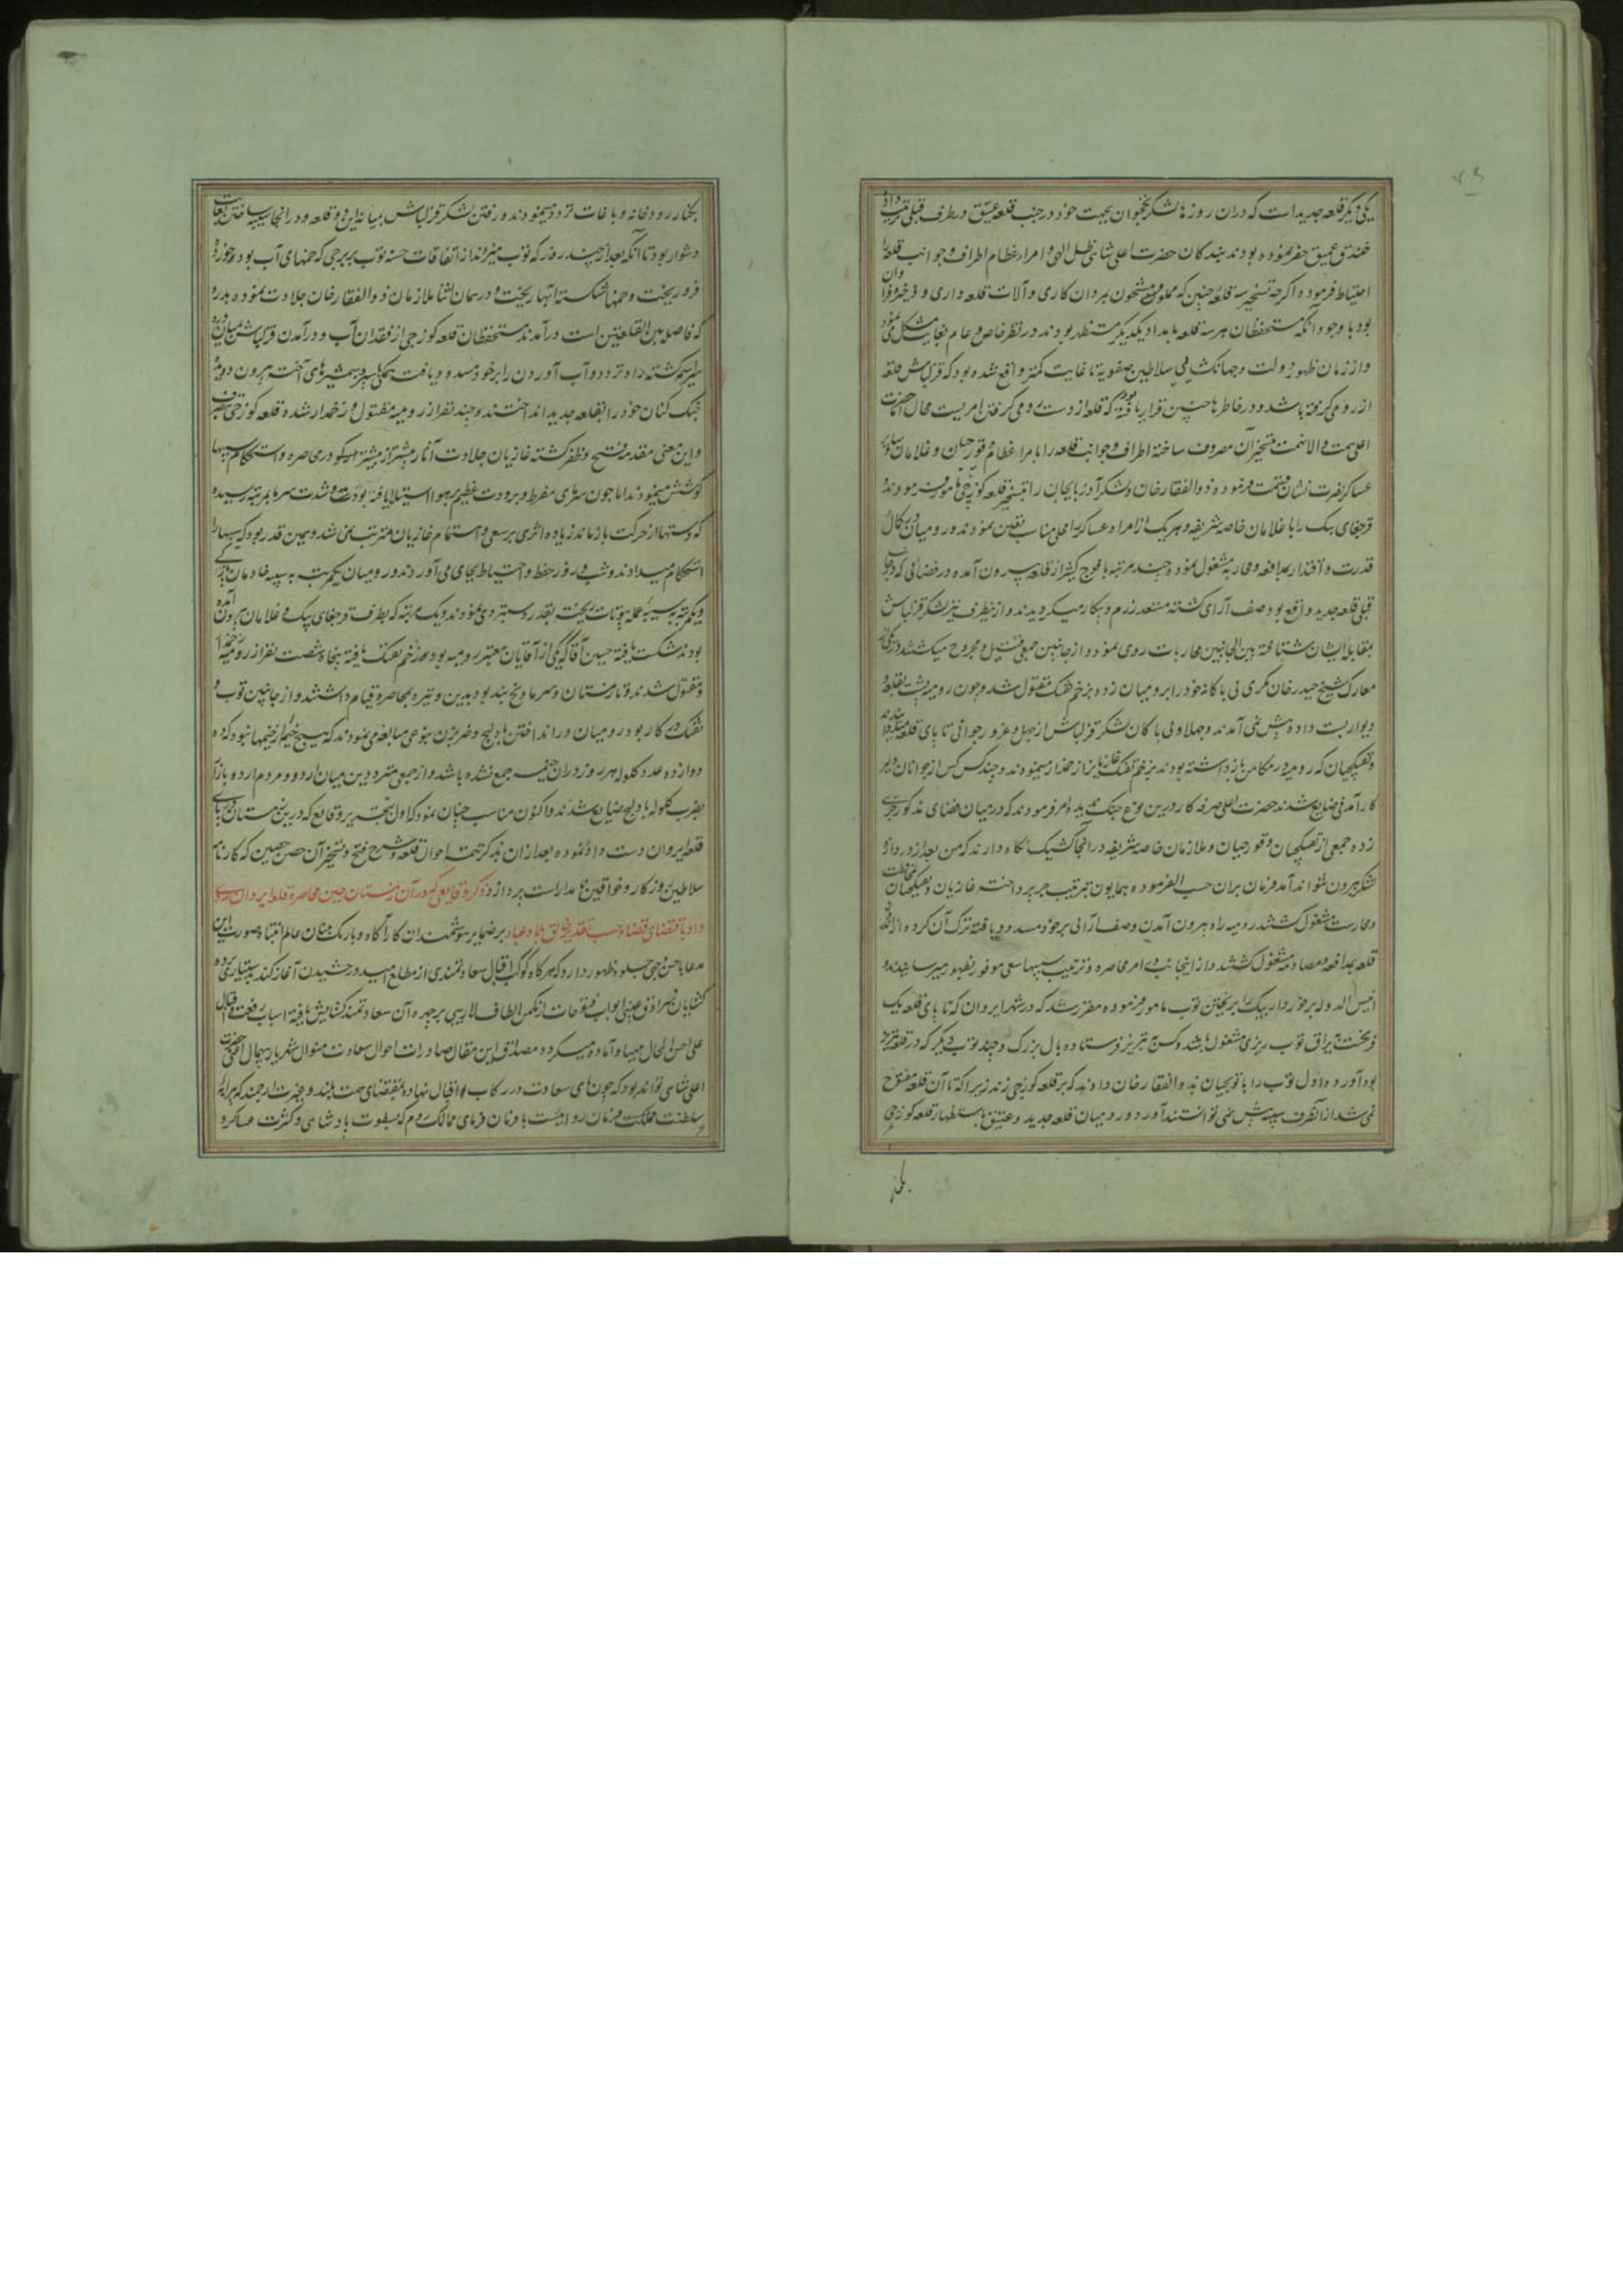 یکی دیگر قلعه جدید است که دران روزها لشکر نخجوان بجهت خود در جنب قلعه عتیق در طرف قبلی ترتیب داده
خندق عمیق حفر نموده بودند بندکان حضرت اعلی شاهی ظل الهی و امراء عظام اطراف و جوانب قلعه را
احتیاط فرموده اکرچه تسخیر سه قلعه چنین که مملو و مشحون بمردان کاری و آلات قلعه داری و ذخیره فراوان
بود با وجود انکه مستحفظان هر سه قلعه بامداد یکدیکر مستظهر بودند در نظر خاص و عام بغایت مشکل می نمود
و از زمان ظهور دولت و جهانکشایی سلاطین صفویه تا غایت کمتر واقع شده بود که قزلباش قلعه
از رومی کرفته باشد و در خاطرها چنین قرار یافته بود که قلعه از دست رومی کرفتن امریست محال اما حضرت
اعلی همت والا نهمت بتسخیر آن مصروف ساخته اطراف و جوانب قلعه را بامراء عظام و قورچیان و غلامان و سایر
عساکر نصرت نشان قسمت فرموده ذوالفقار خان و لشکر آذربایجان را بتسخیر قلعه کوزچی مامور فرمودند و
قرچغای بیک را با غلامان خاصه شریفه و هر یک از امراء و عساکر را محلی مناسب تعین نمودند و رومیان در کمال
قدرت و اقتدار بمدافعه و محاربه مشغول نموده چند مرتبه با فوج کثیر از قلعه بیرون آمده در فضائی که در جانب
قبلی قلعه جدید واقع بود صف آرای کشته مستعد رزم و پیکار میکردیدند و از ینطرف نیز لشکر قزلباش
بمقابله ایشان شتافته بین الجانبین محاربات روی نمود و از جانبین جمعی قتیل و مجروح میکشتند در یکی
معارک شیخ حیدر خان مکری بی باکانه خود را بر رومیان زده بزخم تفنک مقتول شد و چون رومیه پشت بقلعه و
دیوار بست داده پیش نمی آمدند و جهلا و بی باکان لشکر قزلباش از جهل و غرور جوانی تا پای قلعه میراندند
و تفنکچیان که رومیه در مکامن باز داشته بودند بزخم تفنک غازیانرا زخمدار مینمودند و چند کس از جوانان دلیر
کار آمدنی ضایع شدند حضرت اعلی صرفه کار درین نوع جنک ندیده امر فرمودند که درمیان فضای مذکور جری
زده جمعی از تفنکچیان و قورچیان و ملازمان خاصه شریفه در آنجا کشیک نکاه دارند که من بعد از دروازه
لشکر بیرون نتواند آمد فرمان بران حسب الفرموده همایون بترتیب جر پرداخته غازیان و تفنکچیان بمحافظت
و محارست مشغول کشتند رومیه راه بیرون آمدن و صف آرائی بر خود مسدود یافته ترک آن کرده از درون
قلعه بمدافعه و مصادمه مشغول کشتند و از اینجانب در امر محاصره و ترتیب سیبها سعی موفور بظهور میرسانیدند و
انیس الدوله برخوردار بیک را بر یختن توپ مامور فرموده مقرر شد که در شهر ایروان که تا پای قلعه یک
فرسخست یراق توپ ریزی مشغول باشند و کس بتبریز فرستاده بال بزرک و چند توپ دیکر که در قلعه تبریز
بود آورده اول توپ را با توپچیان بذوالفقار خان دادند که بر قلعه کوزچی زند زیرا که تا آن قلعه مفتوح
نمی شد از آنطرف سیبه پیش نمی توانستند آورد و رومیان قلعه جدید و عتیق باستظهار قلعه کوزچی
بکنار
بکنار رودخانه و باغات تردد مینمودند و رفتن لشکر قزلباش بمیانه این دو قلعه و در انجا سیبه ساختن بغایت
دشوار بود تا آنکه بعد از چند روز که توپ میزدند از اتفاقات حسنه توپ بر برجی که خمهای آب بود خورده
فرو ریخت و خمها شکسته آبها ریخت و در همان اثنا ملازمان ذوالفقار خان جلادت نموده بدره
که فاصله بین القلعتین است درآمدند مستحفظان قلعه کوزچی از فقدان آب و درآمدن قزلباش بمیان دره
سراسیمه کشته راه تردد و آب آوردن را بر خود مسدود یافت همکی با سپر و شمشیرهای آخته بیرون دویده
جنک کنان خود را بقلعه جدید انداختند و چند نفر از رومیه مقتول و زخمدار شده قلعه کوزچی بتصرف
و این معنی مقدمه فتح و ظفر کشته غازیان جلادت آثار بیشتر از پیشتر در محاصره و استحکام سیبها
کوشش مینمودند اما چون سرمای مفرط و برودت عظیم بر هوا استیلا یافته برودت و شدت سرما بمرتبه رسیده
که دستها از حرکت باز ماند زیاده اثری بر سعی و اهتمام غازیان مترتب نمی شد و همین قدر بود که سیبها را
استحکام میدادند و شب و روز حفظ و احتیاط بجای می آوردند و رومیان یکمرتبه به سیبه خادمان
و یکمرتبه بسیبه عمله بیوتات ریخته بقدر دستبردی نمودند و یک مرتبه که بطرف قرچغای بیک و غلامان بیرون آمده
بودند شکست یافته حسین آقا که یکی از آقایان معتبر رومیه بود بزخم تفنک یافته پنجاه شصت نفر از رومیه زخمدار
و مقتول شدند و تا زمستان و سرما و یخ بند بود بدین وتیره بمحاصره قیام داشتند و از جانبین توپ و
تفنک در کار بود رومیان در انداختن بادلیج و ضربزن بنوعی مبالغه می نمودند که هیچ خیمه از خیمها نبود که ده
دوازده عدد کلوله هر روز دران خیمه جمع نشده باشد و از جمعی مترددین میان اردو و مردم اردو بازار
بضرب کلوله بادلیج ضایع شدند و اکنون مناسب چنان نمود که اول بتحریر وقایع که درین زمستان در پای
قلعه ایروان دست داد نموده بعد از ان بذکر تتمه احوال قلعه و شرح فتح و تسخیر آن حصن حصین که کارنامه
سلاطین روزکار و خواقین مدار است پردازد ذکر وقایعی که در آن زمستان حین محاصره قلعه ایروان روی
داد باقتضای قضا و حسب تقدیر خالق بلاد و عباد بر ضمایر هوشمندان کار آکاه و باریک بینان عالم انتباه صورت این
معنا باحسن وجهی جلوه ظهور دارد که هرکاه کوکب اقبال سعادتمندی از مطلع امید درخشیدن آغاز کند بدستیاری
کشایان سرادق غیبی ابواب فتوحات از مکمن الطاف لاریبی بر چهره آن سعادتمند کشایش یافته اسباب رفعت و اقبال
علی احسن الحال مهیا و آماده میکردد مصداق این مقال صادرات احوال سعادت منوال شهریار بیهمال اعنی حضرت
اعلی شاهی تواند بود که چون پای سعادت در رکاب اقبال نهاده بمقتضای همت بلند و نهمت ارجمند که پیرایه
سلطنت و مملکت و فرمان روائیست با فرمان فرمای ممالک روم که بسطوت پادشاهی و کثرت عساکر و